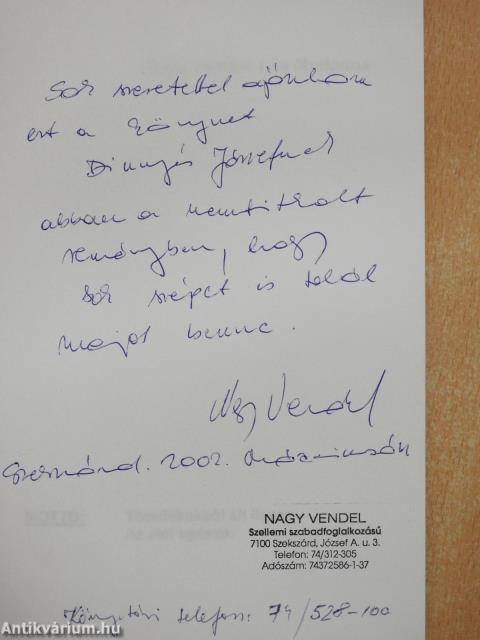 Sok szeretettel ajánlom
ezt a könyvet
Dinnyés Józsefnek
abban a nemtitkolt
reményben, hogy
sok szépet is talál
majd benne.
Nagy Vendel
Szekszárd. 2002.
NAGY VENDEL
Szellemi szabadfoglalkozású
7100 Szekszárd, József A. u. 3.
Telefon: 74/312-305
Adószám: 74372586-1-37
Könyvtári telefon: 74/528-100
Antikvárium.hu